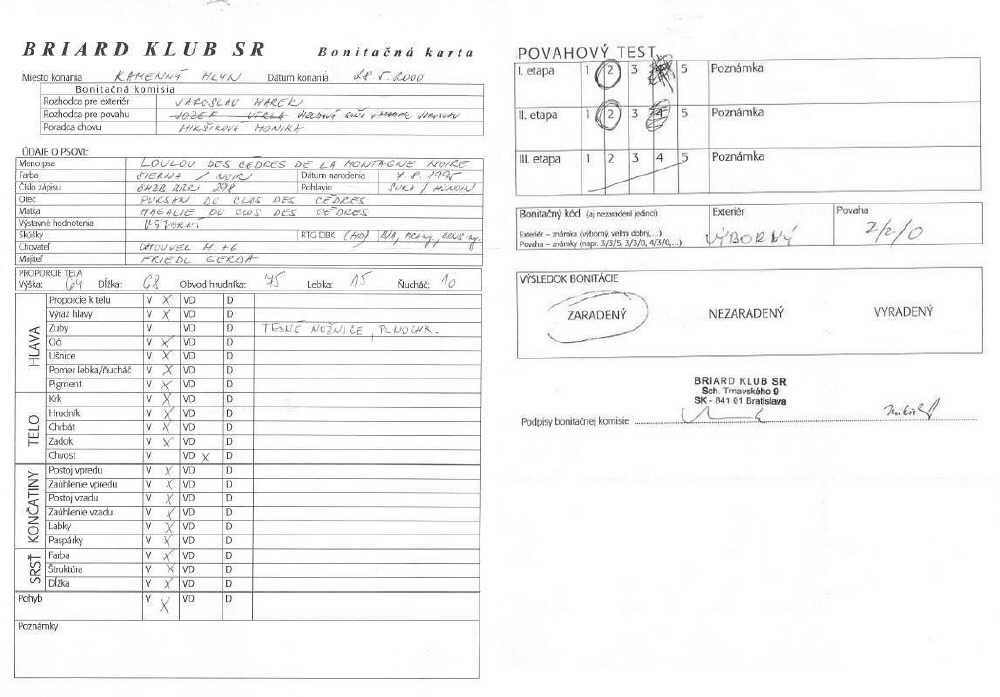 BRIARD KLUB SR Bonitačná karta
Miesto konania KAMENNÝ MLYN Dátum konania 28 5. 2000
Bonitačná komisia
Rozhodca pre exteriér JAROSLAV MAREK
Rozhodca pre povahu JOZEF
Poradca chovu MIKŠÍKOVÁ MONIKA
ÚDAJE O PSOVI:
Meno psa LOULOU DES CÉDRES DE LA MONTAGNE NOIRE
Farba ČIERNA / NOIR Dátum narodenia
Číslo zápisu Pohlavie SUKA /
Otec DU CLOS DES CÉDRES
Matka MAGALIE DU CLOS DES CÉDRES
Výstavné hodnotenie VÝBORNÁ
Skúšky RTG DBK
Chovateľ
Majiteľ FRIEDL GERDA
PROPORCIE TELA
Výška: 64 Dĺžka: 68 Obvod hrudníka: 75 Lebka: 15 Ňucháč: 10
HLAVA
Proporcie k telu V X VD D
Výraz hlavy V X VD D
Zuby V VD D TESNÉ NOŽNICE, PLNOCHR.
Oči V X VD D
Ušnice V X VD D
Pomer lebka/ňucháč V X VD D
Pigment V X VD D
TELO
Krk V X VD D
Hrudník V X VD D
Chrbát V X VD D
Zadok V X VD D
Chvost V VD X D
KONČATINY
Postoj vpredu V X VD D
Zaúhlenie vpredu V X VD D
Postoj vzadu V X VD D
Zaúhlenie vzadu V X VD D
Labky V X VD D
Paspárky V X VD D
SRSŤ
Farba V X VD D
Štruktúra V X VD D
Dĺžka V X VD D
Pohyb V X VD D
Poznámky
POVAHOVÝ TEST
I. etapa 1 2 3 5 Poznámka
II. etapa 1 2 3 4 5 Poznámka
III. etapa 1 2 3 4 5 Poznámka
Bonitačný kód (aj nezaradení jedinci) Exteriér Povaha
Exteriér – známka (výborný, veľmi dobrý,...)
Povaha – známky (napr. 3/3/5, 3/3/0, 4/3/0,...) VÝBORNÝ 2/2/0
VÝSLEDOK BONITÁCIE
ZARADENÝ NEZARADENÝ VYRADENÝ
BRIARD KLUB SR
Sch. Trnavského 9
SK - 841 01 Bratislava
Podpisy bonitačnej komisie